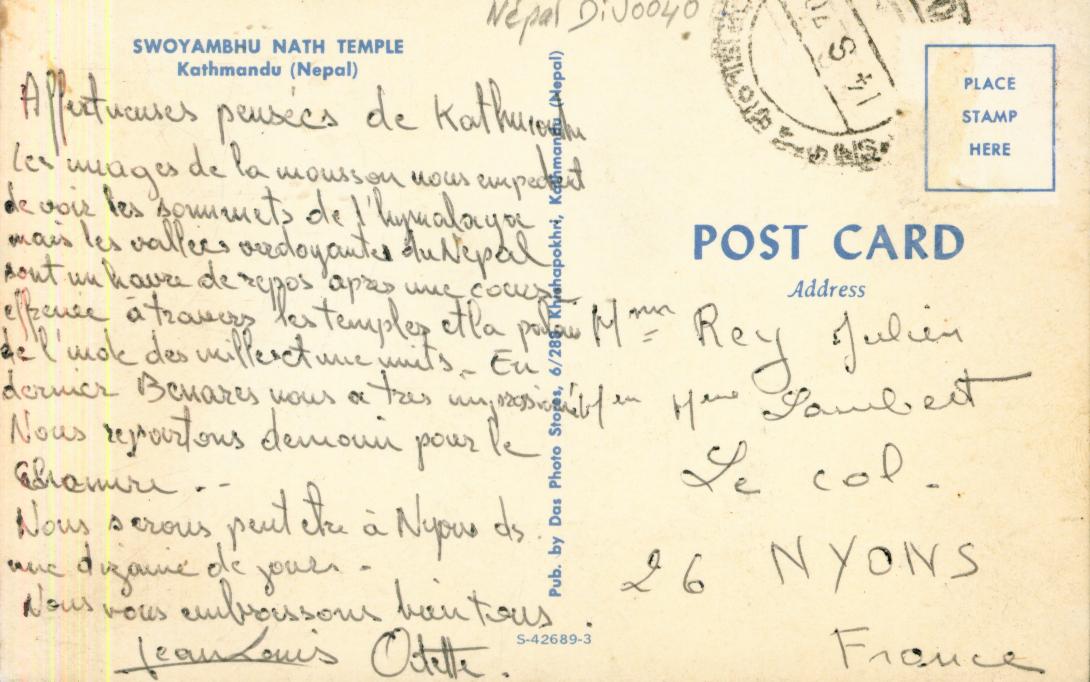 Népal Div0040
SWOYAMBHU NATH TEMPLE
Kathmandu (Nepal)
Affectueuses pensées de Kathmandu
Les nuages de la mousson nous empechent
de voir les sommets de l'hymalaya
mais les vallées verdoyantes du Nepal
sont un havre de repos apres une course
effrenée à travers les temples et la
de l'inde des mille et une nuits. En
dernier Benares nous a tres impressionné
Nous repartons demain pour le
Nous serons peut etre à Nyons ds
une dizaine de jours.
Nous vous embrassons bien tous.
Jean Louis Odette.
Pub. by Das Photo Stores, 6/288, Khichapokhri, Kathmandu (Nepal)
S-42689-3
PLACE
STAMP
HERE
POST CARD
Address
Mme Rey Julien
Mme Lambert
Le col.
26 NYONS
France